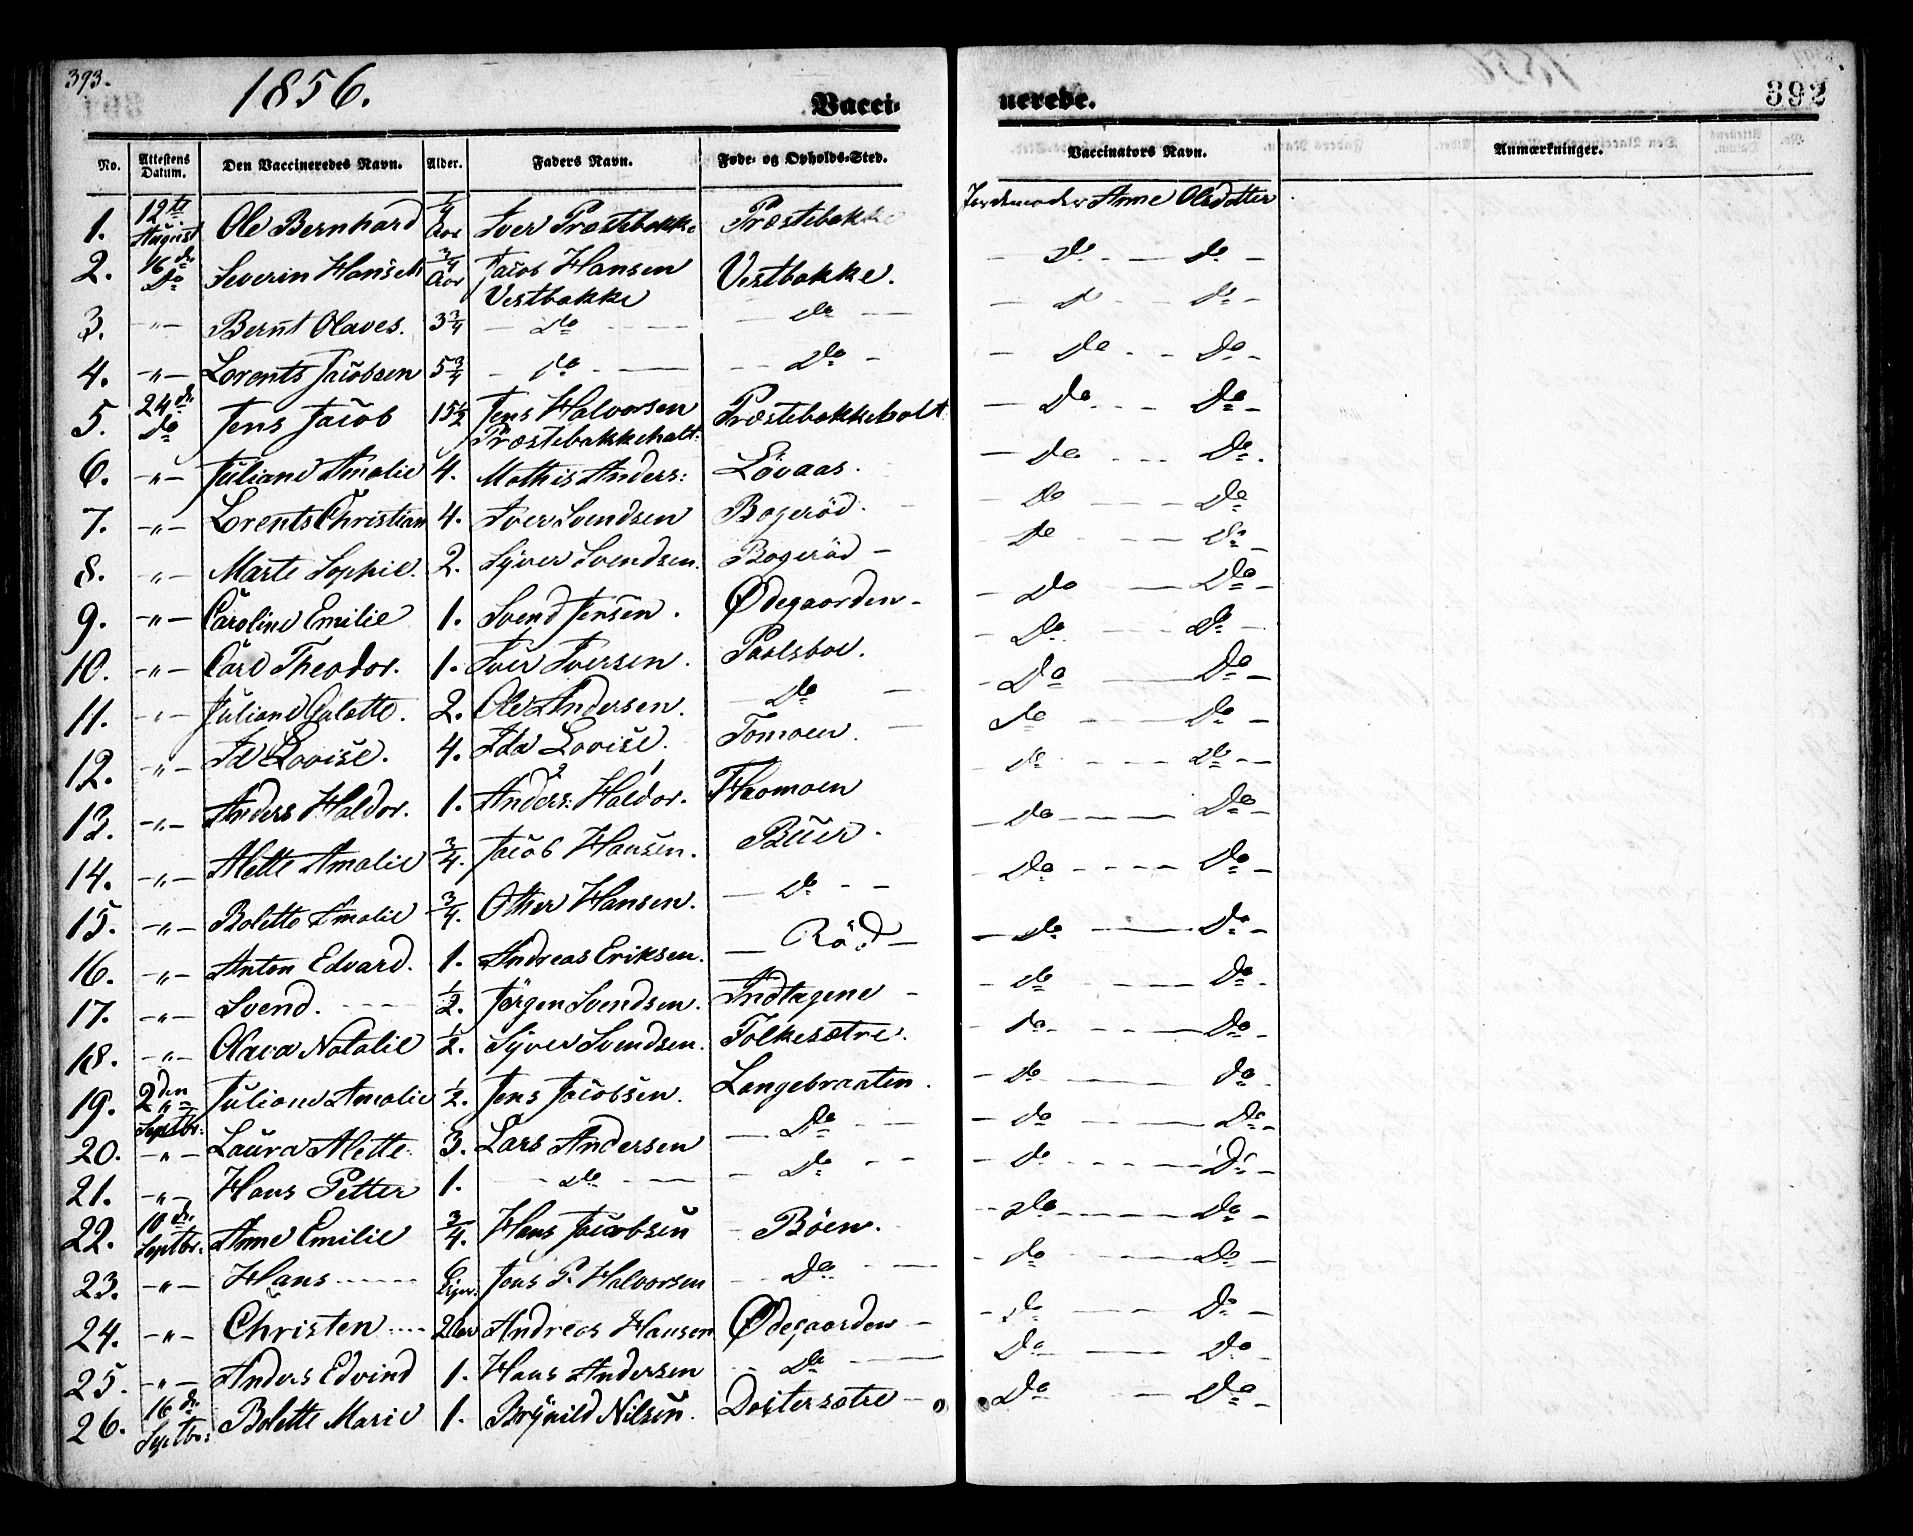 393.
1856.
Vacci-
nerede.
392
No. Attestens Datum. Den Vaccineredes Navn. Alder. Faders Navn. Føde- og Opholds-Sted. Vaccinators Navn. Anmærkninger.
1. 12te August Ole Bernhard 1/4 Aar Iver Præstebakke Præstebakke Jordemoder Anne Olsdatter
2. 16de Do Severin Hansen 3/4 Aar Jacob Hansen Vestbakke Vestbakke. — Do — Do —
3. — " — Bernt Olaves. 3 3/4 — Do — — Do — — Do — Do —
4. — " — Lorents Jacobsen 5 3/4 — Do — — Do — — Do — Do —
5. 24de Do Jens Jacob 15 1/2 Jens Halvorsen Præstebakkeholt. Præstebakkeholt — Do — Do —
6. — " — Juliane Amalie 4. Mathis Anders: Lövaas. — Do — Do.
7. — " — Lorents Christian 4. Iver Svendsen Bogeröd. — Do — Do
8. — " — Marte Sophie. 2. Syver Svendsen. Bogeröd — — Do — Do —
9. — " — Caroline Emilie 1. Svend Jensen. Ødegaarden — — Do — Do —
10. — " — Carl Theodor. 1. Iver Iversen. Paalsboe. — Do — Do —
11. — " — Juliane Galette. 2. Ole Andersen. Do — — Do — Do —
12. — " — Id Lovise. 4. Ida Lovise. Tomoen. — Do — Do —
13. — " — Anders Haldor. 1. Anders: Haldor. Thomoen — Do — Do —
14. — " — Alette Amalie 3/4. Jacob Hansen. Buer. — Do — Do —
15. — " — Bolette Amalie 3/4. Other Hansen. — Do — — Do — Do —
16. — " — Anton Edvard. 1. Andreas Eriksen. — Röd — — Do — Do —
17. — " — Svend. 1/2. Jørgen Svendsen. Indtagene — — Do — Do —
18. — " — Olava Natalie 1/2. Syver Svendsen. Folkesætre. — Do — Do —
19. 2den Septbr: Juliane Amalie 1/2. Jens Jacobsen. Langebraaten. — Do — Do
20. — " — Laura Alette. 3. Lars Andersen — Do — — Do — Do —
21. — " — Hans Petter 1. — Do — — Do — — Do — Do —
22. 10de Septbr: Anne Emilie 3/4. Hans Jacobsen Böen. — Do — Do —
23. — " — Hans Jens P. Halvorsen — Do — — Do — Do —
24. — " — Christen 2 Aar Andreas Hansen Ødegaarden — — Do — Do —
25. — " — Anders Edvind 1. Hans Andersen — Do — — Do — Do —
26. 16de Septbr: Bolette Marie 1. Brynild Nilsen. — Do — Do —